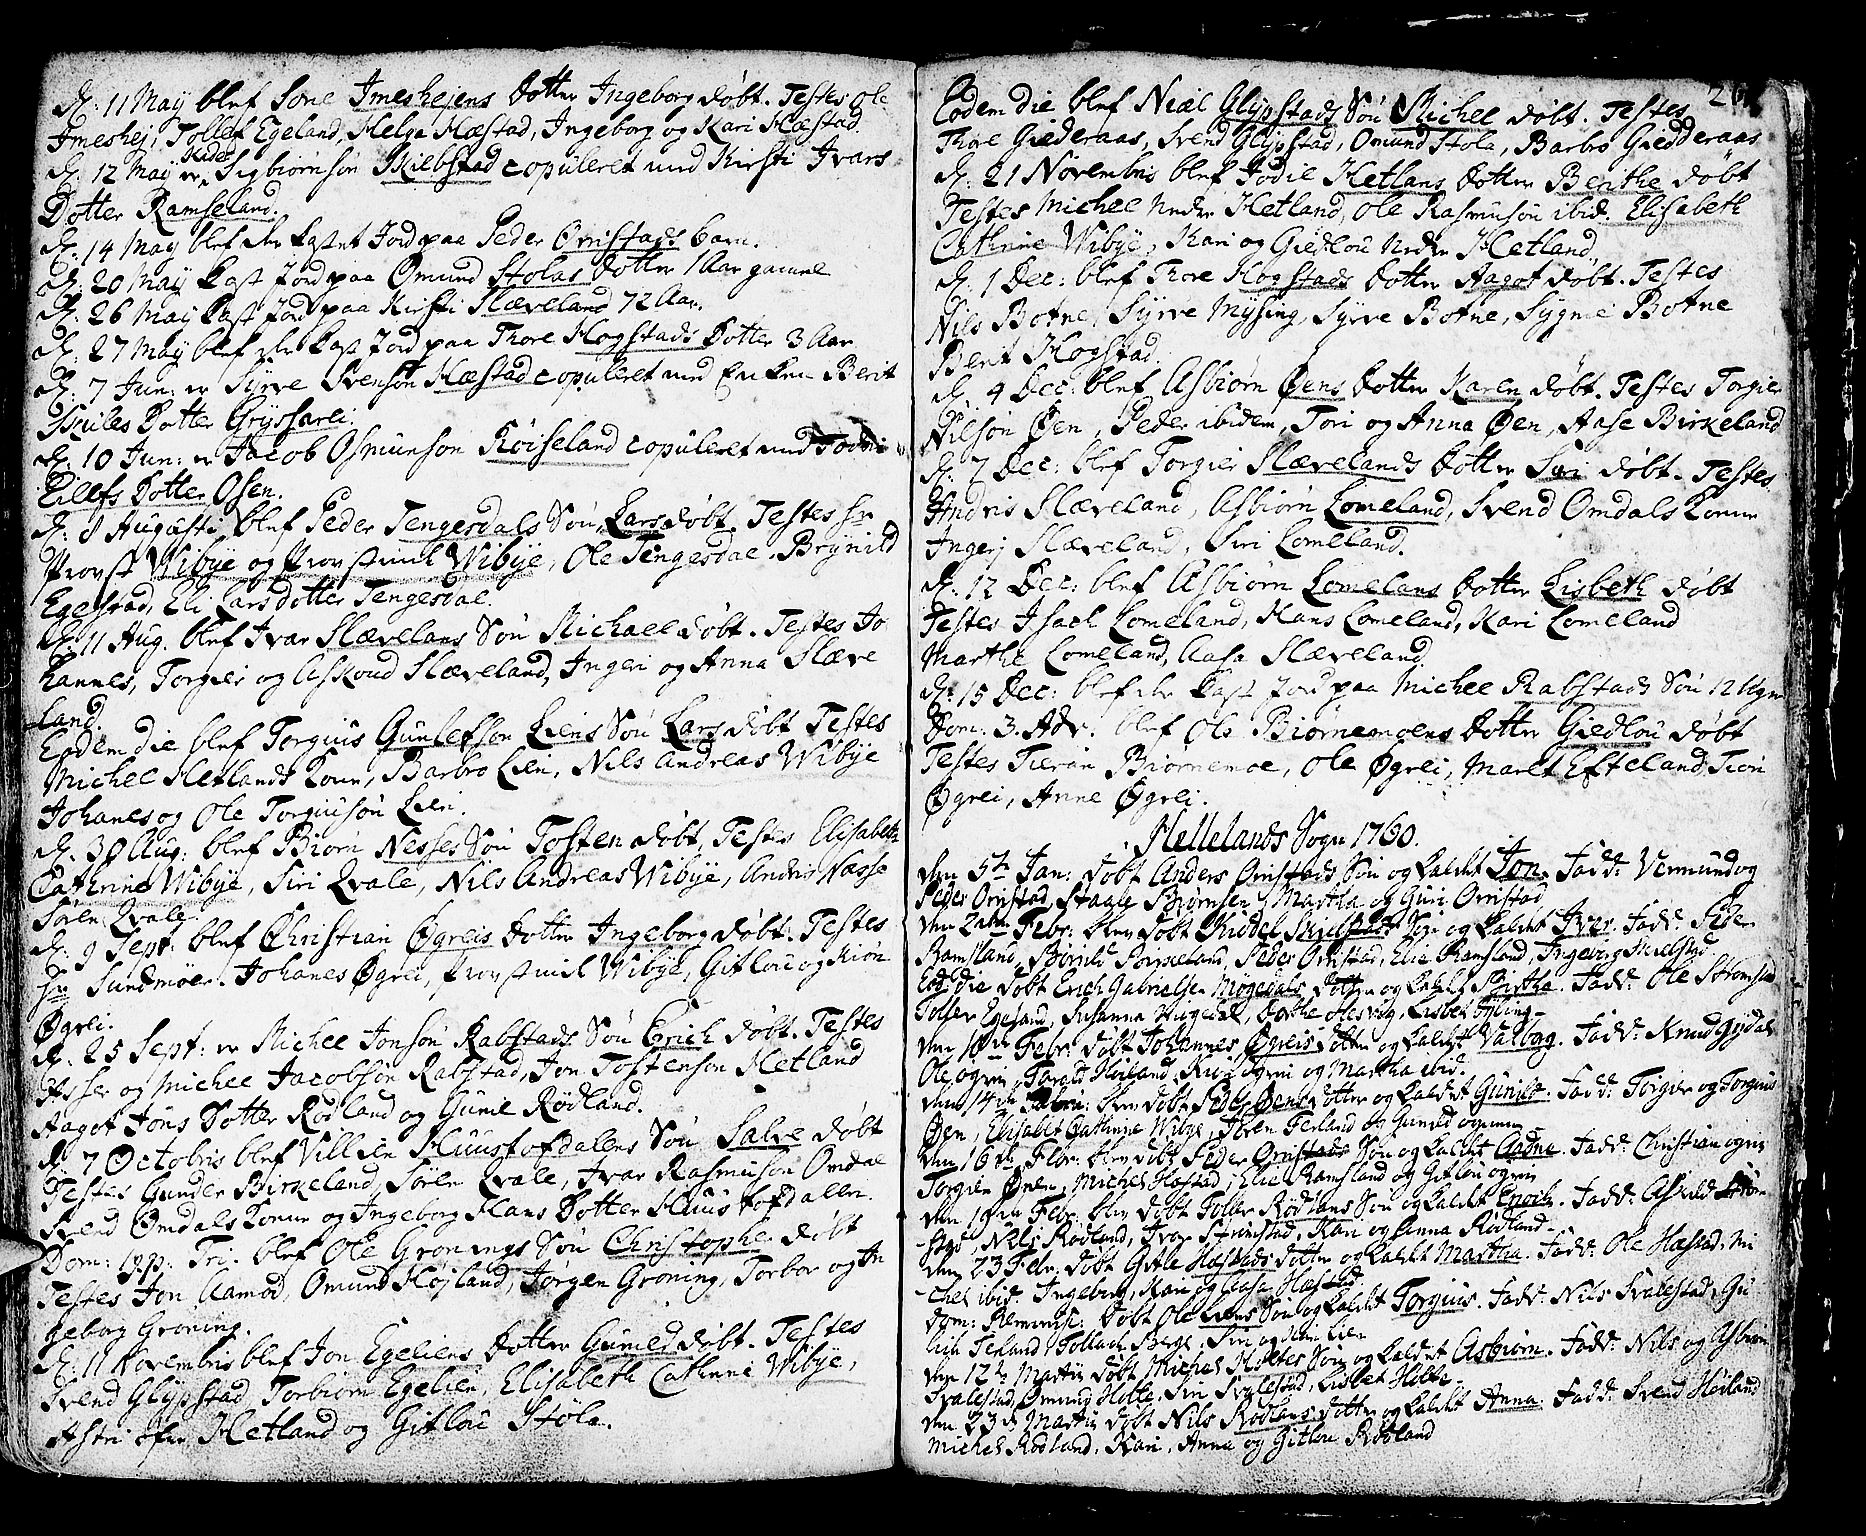 d. 11 Maÿ blef Sone Imeshejens Dotter Ingeborg døbt. Testes Ole
Imeshej, Tollef Egeland, Helga Hæstad, Ingeborg og Kari Hæstad.
d. 12 Maÿ er Kidel Sigbiørnsøn Skiebstad copuleret med Kirsti Ivars
Dotter Ramseland.
d. 14 Maÿ blef der kastet Jord paa Peder Ørnstads barn.
d. 20 Maÿ kast Jord paa Omund Stolas Dotter 1 Aar gamel
d. 26 Maÿ kast Jord paa Kirsti Slæveland 72 Aar.
d. 27 Maÿ blef der kast Jord paa Thore Hogstads Dotter 3 Aar
d. 7 Jun: er Syrve Svensøn Hæstad copuleret med Enken Berit
Skules Dotter
d. 10 Jun: er Jacob Osmunsøn Røiseland copuleret med
Eillefs Dotter Osen.
d. Augusti blef Peder Tengesdals Søn Lars døbt. Testes Hr
Provst Wibÿe og Provstinde Wibÿe, Ole Tengesdal. Brÿnild
Egestad, Eli Larsdotter Tengesdal.
d. 11 Aug. blef Ivar Slævelans Søn Michael døbt. Testes Jo
hannes, Torgier og Askoud Slæveland, Ingeri og Anna Slæve
land.
Eodem die blef Torgius Gunlefsøn Liens Søn Lars døbt Testes
Michel Hetlands Kone, Barbro Lien, Nils Andreas Wibÿe
Johanes og Ole Torgiusøn Lien.
d. 30 Aug: blef Biørn Nesses Søn Tosten døbt, Testes Elisabeth
Cathrine Wibÿe, Siri Qvale, Nils Andreas Wibÿe, Andris Nasse
Søren Qvale.
d. 9 Sept: blef Christian Øgreis Dotter Ingeborg døbt. Testes
Hr Sundmøer. Johanes Øgrei, Provstinde Wibÿe, Gitlou og Kiøn
Øgrei.
d. 25 Sept: er Michel Jonsøn Rabstads Søn Erich døbt. Testes
Asser og Michel Jacobsøn Rabstad, Jon Tostensøn Hetland
Aagot Jons Dotter Rødland og Gunil Rødland.
d. 7 Octobris blef Villien Huustofdalens Søn Salve døbt
Testes Gunder Birkeland, Søren Qvale, Ivar Rasmusøn Omdal
Svend Omdals Konne og Ingeborg Hans Dotter Huustofdallen.
Dom: Tri: blef Ole Grønings Søn Christopher døbt
Testes Jon Aamod, Omund Højland, Jørgen Grøning, Torbor og In
geborg Grøning.
d. 11 Novembris blef Jon Egeliens Dotter Guneld døbt. Testes
Svend Glÿpstad, Torbiørn Egelien, Elisabeth Cathrine Wibÿe,
Astri øfre Hetland og Gitlou Støla.
26
Eodem die blef Niæl Glÿpstads Søn Michel døbt. Testes
Thore Giederaas, Svend Glÿpstad, Omund Stola, Barbro Giedderaas
d. 21 Novembris blef Jodie Hetlans Dotter Berthe døbt
Testes Michel Nedre Hetland, Ole Rasmusøn ibid. Elisabeth
Cathrine Wibÿe, Kari og Giedlou Nedre Hetland.
d. 1 Dec: blef Thore Hogstads Dotter Aagot døbt. Testes
Nils Botne, Syrve Mÿsing, Syrve Botne, Sygnie Botne
Berit Hogstad.
d. 4 Dec: blef Asbiørn Øens Dotter Karen døbt. Testes Torgier
Nilsøn Øen, Peder ibidem, Tori og Anna Øen, Aase Birkeland
d. 7 Dec: blef Torgier Slævelands Dotter Siri døbt. Testes
Andris Slæveland, Asbiørn Lomeland, Svend Omdals Konne
Ingerj Slæveland, Siri Lomeland.
d. 12 Dec: blef Asbiørn Lomelans Dotter Lisbeth døbt
Testes Isach Lomeland, Hans Lomeland, Kari Lomeland
Marthe Lomeland, Aasa Slæveland.
d. 15 Dec: blef der kast Jord paa Michel Rabstads Søn 12 Uger
Dom: 3. Adv: blef Ole Biørnemoens Dotter Giedlou døbt
Testes Tieran Biørnemoe, Ole Øgrei, Maret Efteland, Tiøri
Øgrei, Anne Øgrei.
Hellelands Sogn 1760.
den 5te Jan: døbt Anders Ørnstads Søn og kaldet Jon. Fadd: Vermund og
Peder Ørnstad, Staale Biørnsen, Martha og Guri Ørnstad
den 2den Febr: blev døbt Kiddel Skiefstads Søn og kaldet Iver. Fadd: Peder
Ramsland, Børild Birkeland, Peder Ørnstad, Elie Ramsland, Ingeborg Skielstad
Eod: die døbt Erich Gabrielsen Møgedals Dotter og kaldet Birthe. Fadd: Ole Strømsøe
Tolle Egeland, Susanna Mugedal, Dorthe Olesdog, Lisbet
den 10de Febr: døbt Johannes Øgreis Dotter og kaldet Valborg. Fadd: Knud Gÿdal
Ole øgrein, Tarald Høiland, øgrei og Martha ibid.
den 14de Febru: blev døbt Peder Øens Dotter og kaldet Gunild. Fadd: Torger og Torgius
Øen, Elisabet Cathrina Wibÿe, Søren Terland og Gunild
den 16de Febr: blev døbt Peder Ørnstads Søn og kaldet Aadne. Fadd: Christian øgrei
Torgier Øren, Michel Hæstad, Elie Ramsland og Gitlou øgrein
den 19de Febr: blev døbt Tolle Rødlans Søn og kaldet Enoch. Fadd: Asbild Strøm
stad, Nils Rødland, Ivar Strømstad, Kari og Anna Rødland.
den 23 Febr: døbt Gitle Hæstads Dotter og kaldet Martha. Fadd: Ole Hæstad, Mi
chel ibid. Ingeborg, Kari og Aasa Hæstad
Dom: Reminisc: døbt Ole Liens Søn og kaldet Torgius. Fadd: Nils Svalestad, Gu
lich Terland, Tollach Berge, Siri og Lien
den 12te Martii døbt Michel Holtes Søn og kaldet Asbiørn. Fadd: Nils og Asbiørn
Svalestad, Omund Holte, Siri Svalestad, Lisbet Holte.
den 23de Martii døbt Nils Rødlans Dotter og kaldet Anna. Fadd: Svend Høiland
Michel Rødland, Kari, Anna og Gitlou Rødland